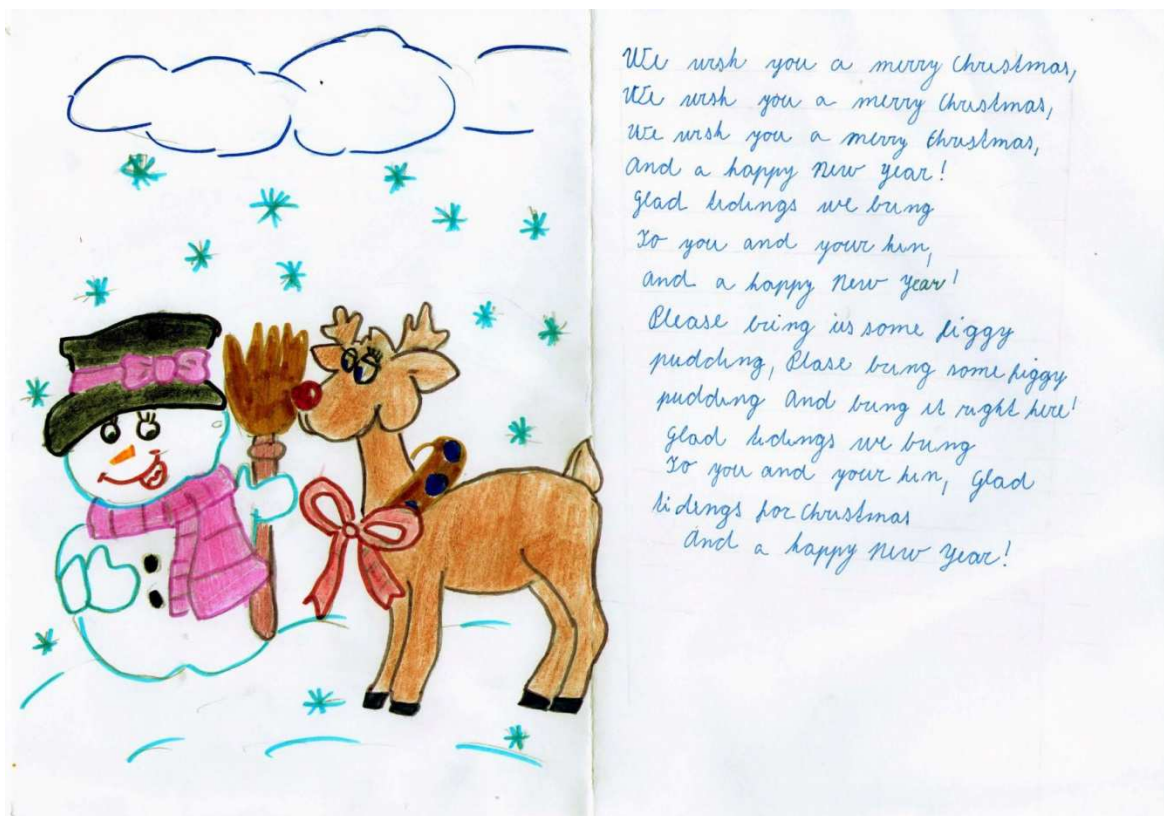 We wish you a merry Christmas,
We wish you a merry Christmas,
We wish you a merry Christmas,
And a happy New Year!
Glad tidings we bring
To you and your kin,
And a happy New Year!
Please bring us some figgy
pudding, Plase bring some figgy
pudding And bring it right here!
Glad tidings we bring
To you and your kin, Glad
tidings for Christmas
And a happy New Year!